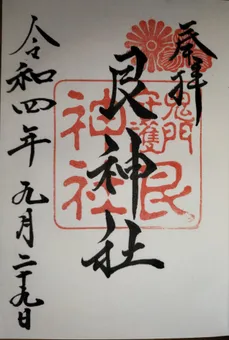 奉拝
鬼門
守護
艮
神社
艮神社
令和四年 九月二十九日